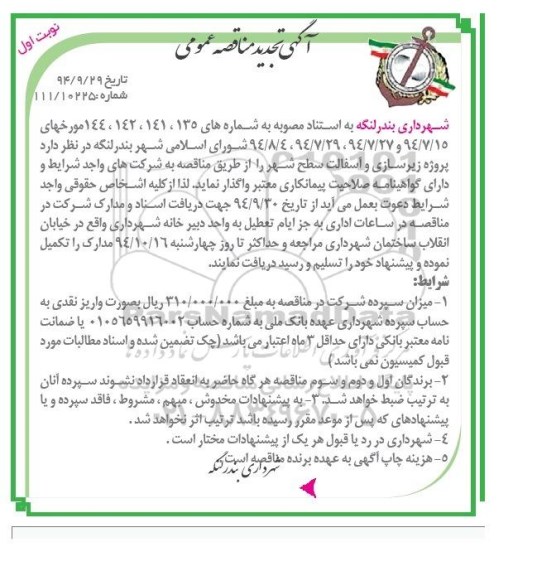 نوبت اول
آگهی تجدید مناقصه عمومی
تاریخ ۹۴/۹/۲۹
شماره: ۱۱۱/۱۰۲۲۵
شهرداری بندرلنگه به استناد مصوبه به شماره های ۱۳۵ ، ۱۴۱ ، ۱۴۲ ، ۱۴۴مورخهای
۹۴/۷/۱۵ و ۹۴/۷/۲۷ ، ۹۴/۷/۲۹ ، ۹۴/۸/۴ شورای اسلامی شهر بندرلنگه در نظر دارد
پروژه زیرسازی و آسفالت سطح شهر را از طریق مناقصه به شرکت های واجد شرایط و
دارای گواهینامه صلاحیت پیمانکاری معتبر واگذار نماید. لذا از کلیه اشخاص حقوقی واجد
شرایط دعوت بعمل می آید از تاریخ ۹۴/۹/۳۰ جهت دریافت اسناد و مدارک شرکت در
مناقصه در ساعات اداری به جز ایام تعطیل به واحد دبیر خانه شهرداری واقع در خیابان
انقلاب ساختمان شهرداری مراجعه و حداکثر تا روز چهارشنبه ۹۴/۱۰/۱۶ مدارک را تکمیل
نموده و پیشنهاد خود را تسلیم و رسید دریافت نمایند.
شرایط:
۱- میزان سپرده شرکت در مناقصه به مبلغ ۳۱۰/۰۰۰/۰۰۰ ریال بصورت واریز نقدی به
حساب سپرده شهرداری عهده بانک ملی به شماره حساب ۰۱۰۵۶۵۹۹۱۶۰۰۲ یا ضمانت
نامه معتبر بانکی دارای حداقل ۳ ماه اعتبار می باشد (چک تضمین شده و اسناد مطالبات مورد
قبول کمیسیون نمی باشد )
۲- برندگان اول و دوم و سوم مناقصه هر گاه حاضر به انعقاد قرارداد نشوند سپرده آنان
به ترتیب ضبط خواهد شد. ۳- به پیشنهادات مخدوش ، مبهم ، مشروط ، فاقد سپرده و یا
پیشنهادهای که پس از موعد مقرر رسیده باشد ترتیب اثر نخواهد شد .
۴- شهرداری در رد یا قبول هر یک از پیشنهادات مختار است .
۵- هزینه چاپ آگهی به عهده برنده مناقصه است.
شهرداری بندرلنگه
ParsNamadData